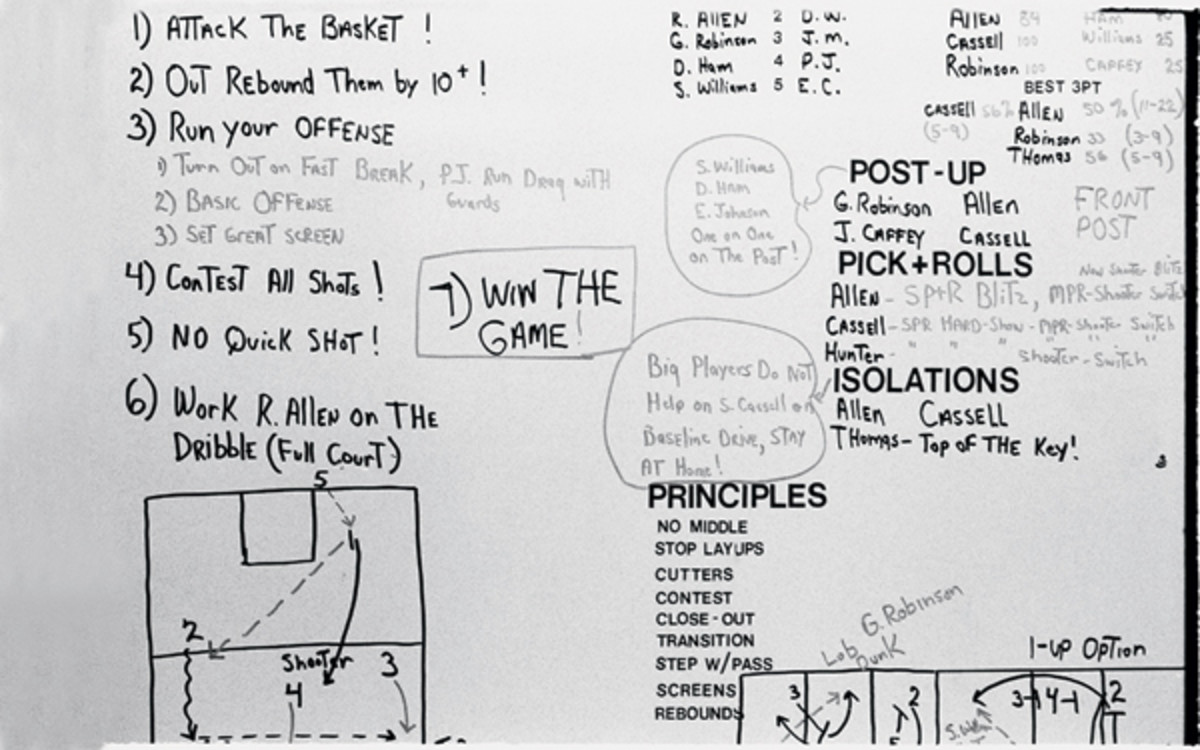 1) ATTACK The BASKET !
2) OuT REbound Them by 10+ !
3) Run your OFFENSE
1) Turn Out on FAST BREAK, P.J. Run Drag with Guards
2) BASIC OFFENSE
3) SET GREAT SCREEN
4) ConTEST All ShoTs !
5) NO QuicK SHoT !
6) WorK R. ALLEN on THE
DRibblE (Full CourT)
7) WIN THE
GAME!
5
1
2
Shooter
4
3
R. AllEN 2 D.W.
G. Robinson 3 J.M.
D. Ham 4 P.J.
S. Williams 5 E.C.
AllEN 84 HAM
CASSEll 100 Williams 25
Robinson 100 CAFFEY 25
BEST 3PT
CASSEll 56% AllEN 50 % (11-22)
(5-9) Robinson 33 (3-9)
THomas 56 (5-9)
S. Williams
D. Ham
E. Johnson
One on One
on The Post!
POST-UP
G. Robinson Allen FRONT
J. CAFFEY CASSELL POST
PICK+ROLLS
Allen - SP+R Blitz, MPR-Shooter Switch
CASSEll - SPR HARD-Show - MPR-Shooter Switch
HunTer - " " " Shooter-Switch
Big Players Do Not
Help on S. Cassell on
Baseline Drive, STAY
AT Home!
ISOLATIONS
Allen CASSELL
THomas - Top of THE Key!
3
PRINCIPLES
NO MIDDLE
STOP LAYUPS
CUTTERS
CONTEST
CLOSE-OUT
TRANSITION
STEP W/PASS
SCREENS
REBOUNDS
Lob G. Robinson
DunK
1-UP OPTION
3
2
3-1 4-1 2